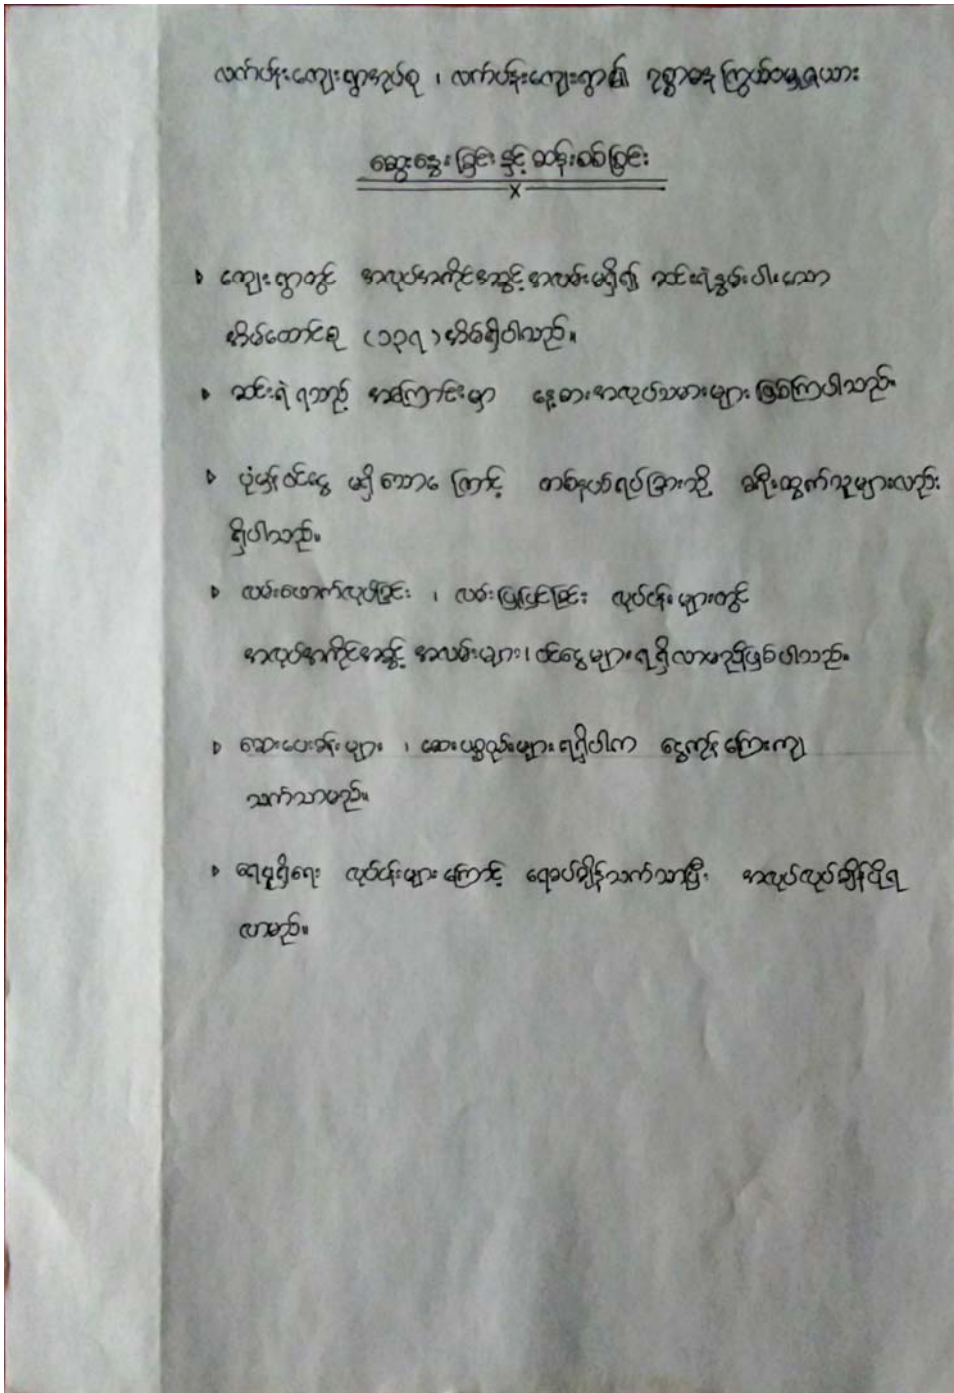 လက်ပန်းကျေးရွာအုပ်စု ၊ လက်ပန်းကျေးရွာ၏ ဥစ္စာဓန ကြွယ်ဝမှုဇယား
ဆွေးနွေးခြင်းနှင့်ဆန်းစစ်ခြင်း
ကျေးရွာတွင် အလုပ်အကိုင်အခွင့်အလမ်းမရှိ၍ ဆင်းရဲနွမ်းပါးသော
အိမ်ထောင်စု (၁၃၇) အိမ်ရှိပါသည်။
ဆင်းရဲရသည့် အကြောင်းမှာ နေ့စားအလုပ်သမားများဖြစ်ကြပါသည်။
ပုံမှန်ဝင်ငွေ မရှိသောကြောင့် တစ်နယ်ရပ်ခြားသို့ ခရီးထွက်သူများလည်း
ရှိပါသည်။
လမ်းဖောက်လုပ်ခြင်း ၊ လမ်းပြုပြင်ခြင်း လုပ်ငန်းများတွင်
အလုပ်အကိုင်အခွင့်အလမ်းများ၊ ဝင်ငွေများရရှိလာမည်ဖြစ်ပါသည်။
ဆေးပေးခန်းများ ၊ ဆေးပစ္စည်းများရရှိပါက ငွေကုန်ကြေးကျ
သက်သာမည်။
ရေရရှိရေး လုပ်ငန်းများကြောင့် ရေခပ်ချိန်သက်သာပြီး အလုပ်လုပ်ချိန်ပိုရ
လာမည်။